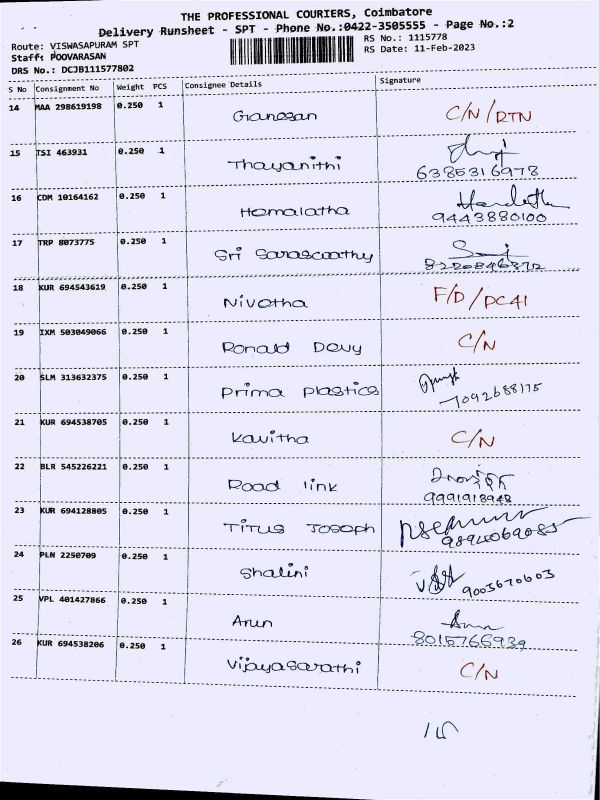 THE PROFESSIONAL COURIERS, Coimbatore
Delivery Runsheet - SPT - Phone No.:0422-3505555 - Page No.:2
Route: VISWASAPURAM SPT
RS No.: 1115778
Staff: POOVARASAN
RS Date: 11-Feb-2023
DRS No.: DCJB111577802
S No Consignment No Weight PCS Consignee Details Signature
14 MAA 298619198 0.250 1 Ganesan C/N/RTN
15 TSI 463931 0.250 1 Thayanithi
6385316978
16 CDM 10164162 0.250 1 Hemalatha
9443880100
17 TRP 8073775 0.250 1 Sri Sarascoathy
18 KUR 694543619 0.250 1 Nivetha F/D/DC41
19 IXM 503049066 0.250 1 Ronald Devy C/N
20 SLM 313632375 0.250 1 Prima Plastics
7092688175
21 KUR 694538705 0.250 1 Kavitha C/N
22 BLR 545226221 0.250 1 Road link
9991918948
23 KUR 694128805 0.250 1 Titus Joseph
24 PLN 2250709 0.250 1 Shalini 9003670603
25 VPL 401427866 0.250 1 Arun
8015766939
26 KUR 694538206 0.250 1 Vijayasarathi C/N